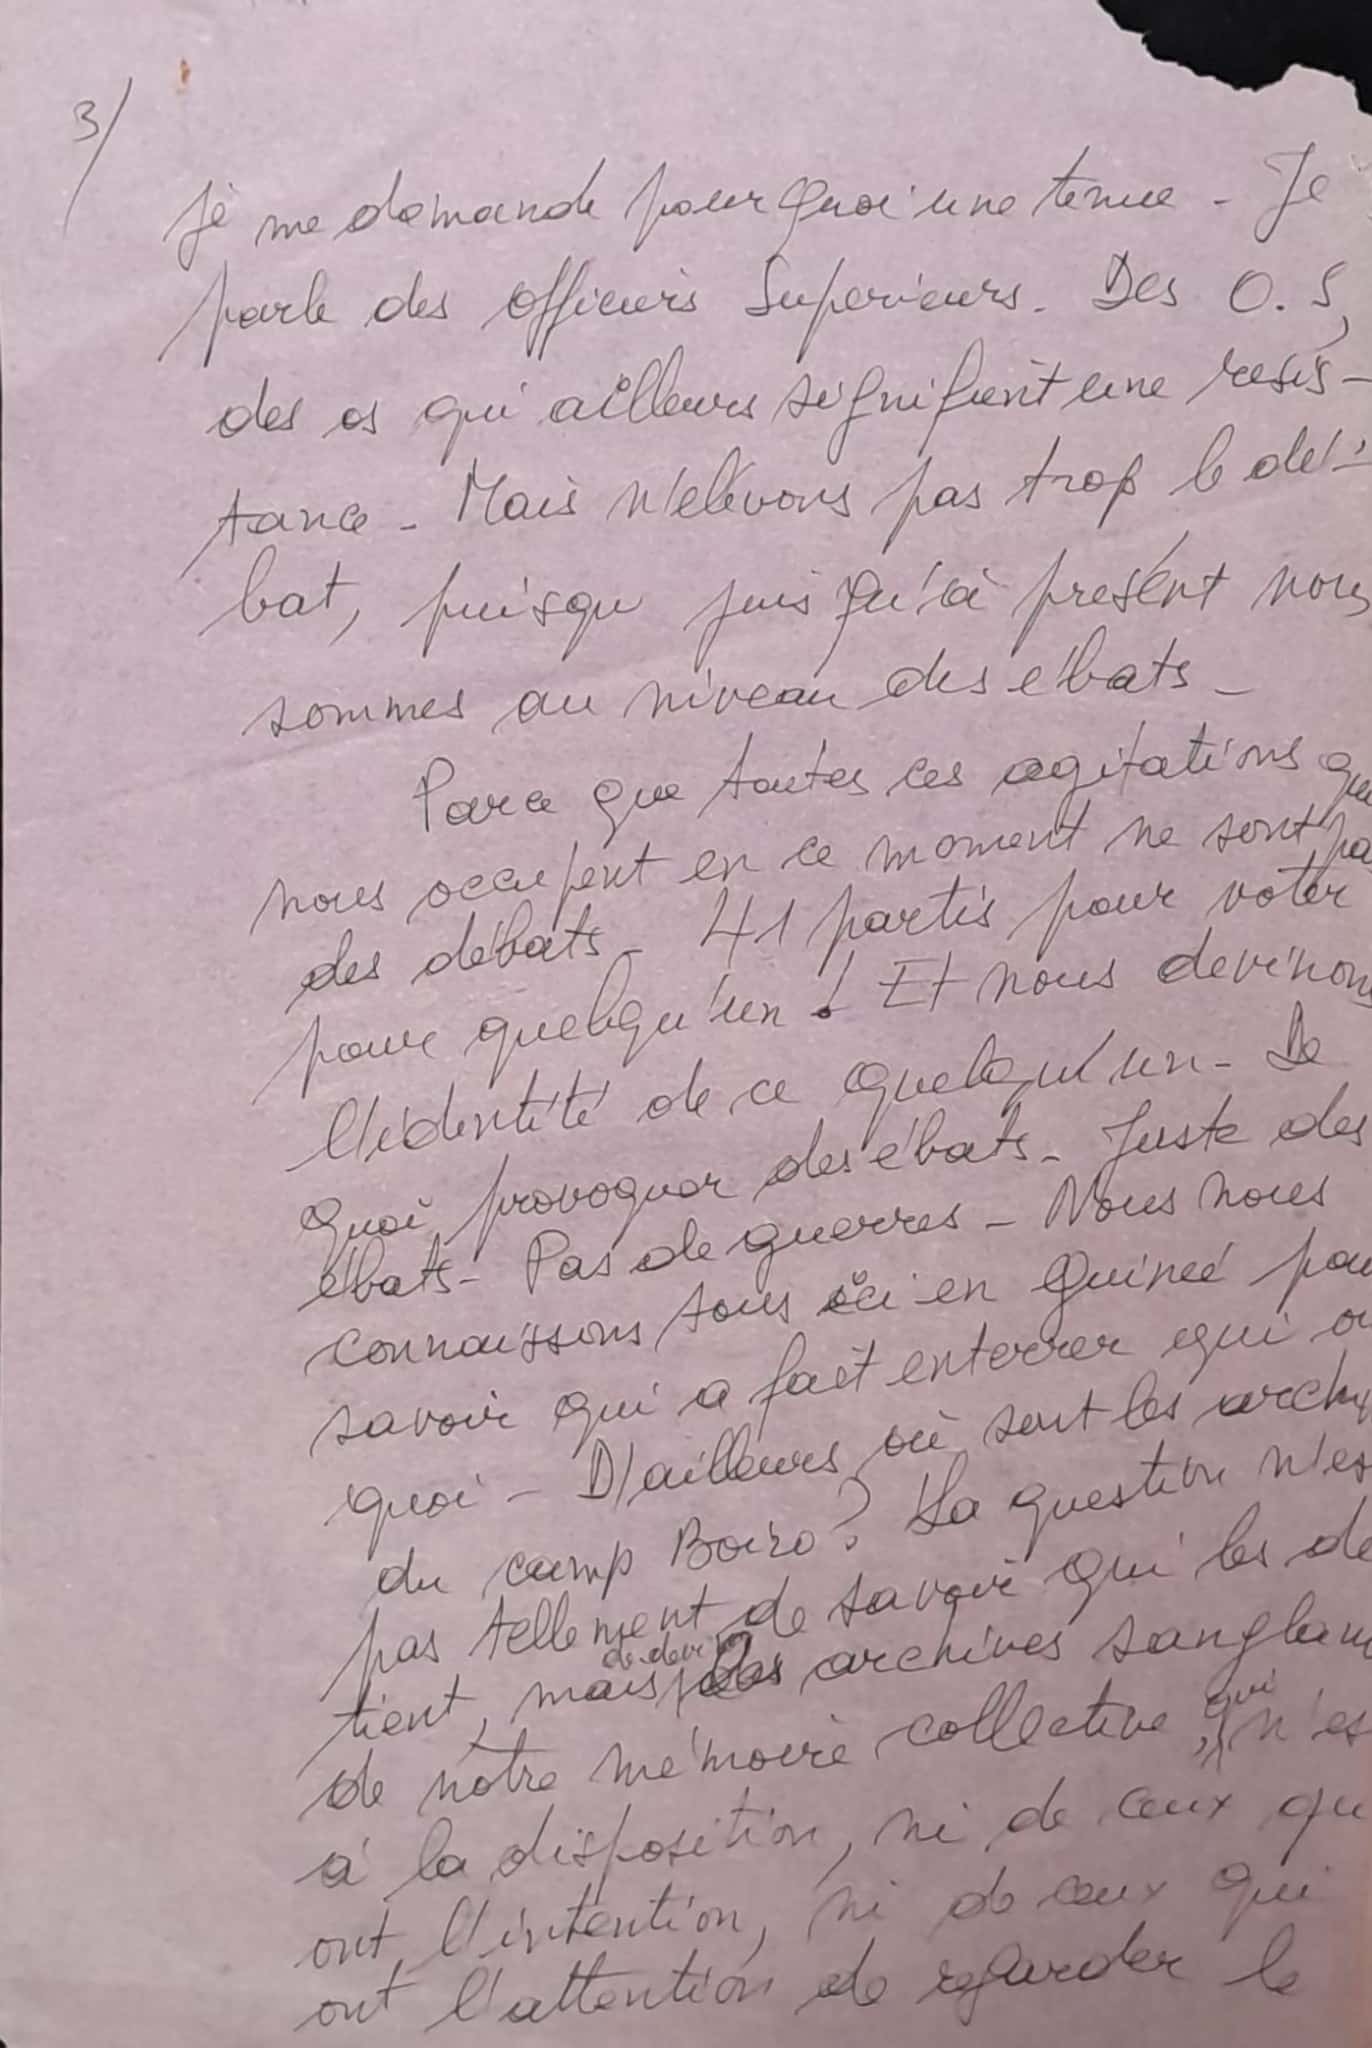 3/
Je me demande pourquoi une tenue - Je
parle des officiers Superieurs. Des O.S,
des os qui ailleurs signifient une resis-
tance - Mais n'elevons pas trop le dé-
bat, puisqu jusqu'à présent nous
sommes au niveau des ébats -
Parce que toutes ces agitations qui
nous occupent en ce moment ne sont pa
des débats - 41 partis pour voter
pour quelqu'un! Et nous devinons
l'identité de ce quelqu'un - De
quoi provoquer des ébats - Juste des
ébats - Pas de guerres - Nous nous
connaissons tous ici en Guinée pou
savoir qui a fait enterrer qui ou
quoi - D'ailleurs où sont les archi
du camp Boiro? La question n'es
pas tellement de savoir qui les dé
tient, mais des archives sanglan
de notre mémoire collective, qui n'es
à la disposition, ni de ceux qu
ont l'intention, ni de ceux qui
ont l'attention de regarder le